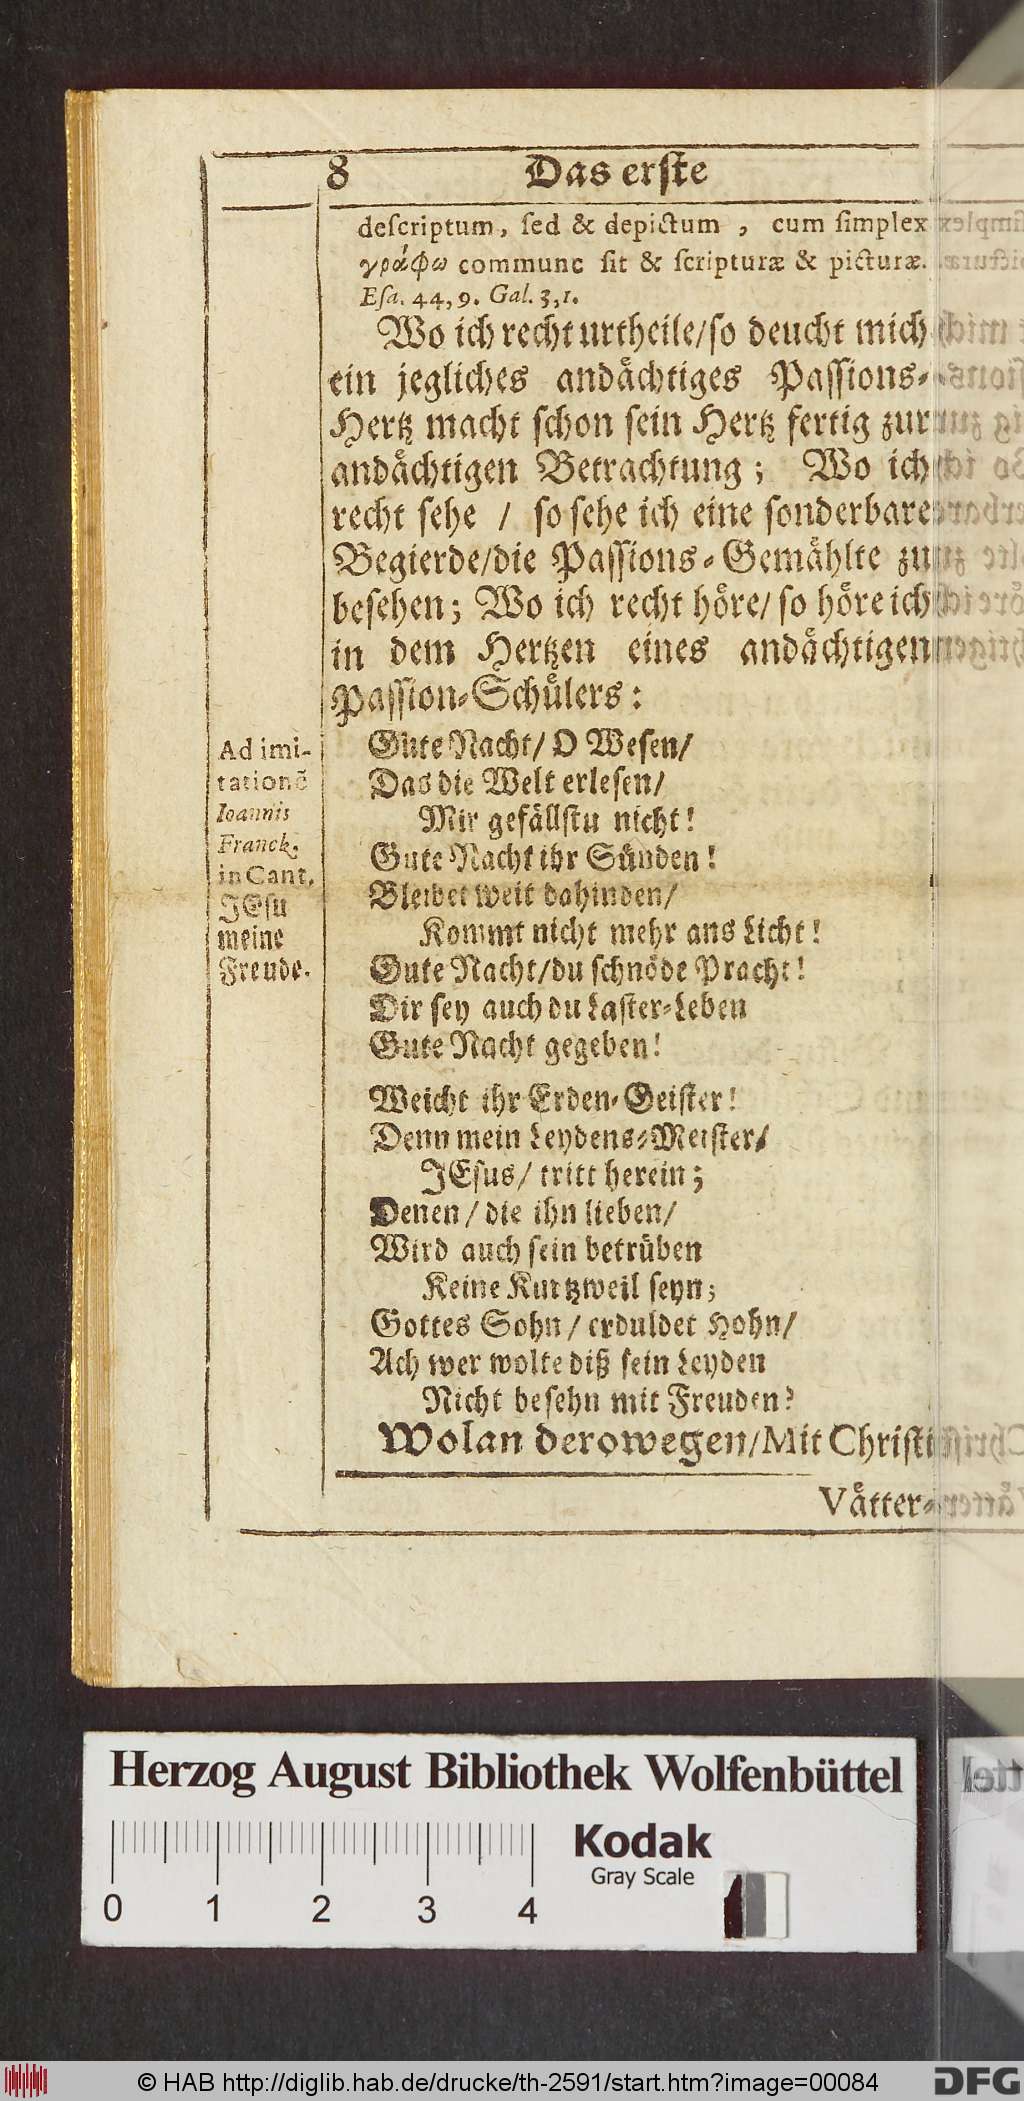 8 Das erste
deſcriptum, ſed & depictum, cum ſimplex
γράφω commune ſit & ſcripturæ & picturæ.
Eſa. 44, 9. Gal. 3, 1.
Wo ich recht urtheile/ſo deucht mich
ein jegliches andåchtiges Paſſions-
Hertz macht ſchon ſein Hertz fertig zur
andåchtigen Betrachtung; Wo ich
recht ſehe / ſo ſehe ich eine ſonderbare
Begierde/die Paſſions-Gemåhlte zu
beſehen; Wo ich recht hőre/ ſo hőre ich
in dem Hertzen eines andåchtigen
Paſſion-Schülers:
Ad imi-
tationẽ
Ioannis
Franck.
in Cant.
JEſu
meine
Freude.
Gute Nacht/ O Weſen/
Das die Welt erleſen/
Mir gefällſtu nicht!
Gute Nacht ihr Sünden!
Bleibet weit dahinden/
Kommt nicht mehr ans Licht!
Gute Nacht/du ſchnöde Pracht!
Dir ſey auch du Laſter-Leben
Gute Nacht gegeben!
Weicht ihr Erden-Geiſter!
Denn mein Leydens-Meiſter/
JEſus/ tritt herein;
Denen/ die ihn lieben/
Wird auch ſein betrüben
Keine Kurtzweil ſeyn;
Gottes Sohn/ erduldet Hohn/
Ach wer wolte diß ſein Leyden
Nicht beſehn mit Freuden?
Wolan derowegen/Mit Chriſti
Våtter-
Herzog August Bibliothek Wolfenbüttel
Kodak
Gray Scale
0 1 2 3 4
© HAB http://diglib.hab.de/drucke/th-2591/start.htm?image=00084
DFG